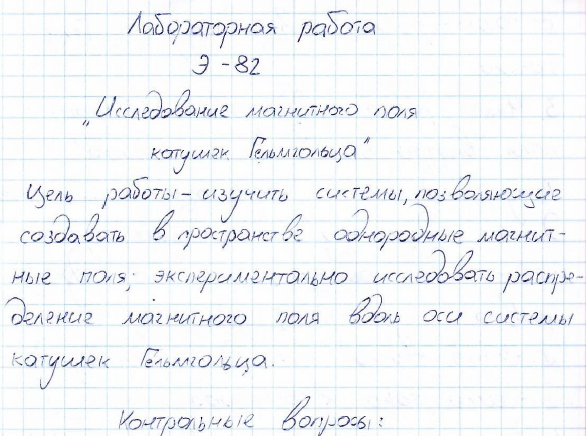 Лабораторная работа
Э-82
„Исследование магнитного поля
катушек Гельмгольца"
Цель работы - изучить системы, позволяющие
создавать в пространстве однородные магнит-
ные поля; экспериментально исследовать распре-
деление магнитного поля вдоль оси системы
катушек Гельмгольца.
Контрольные вопросы: